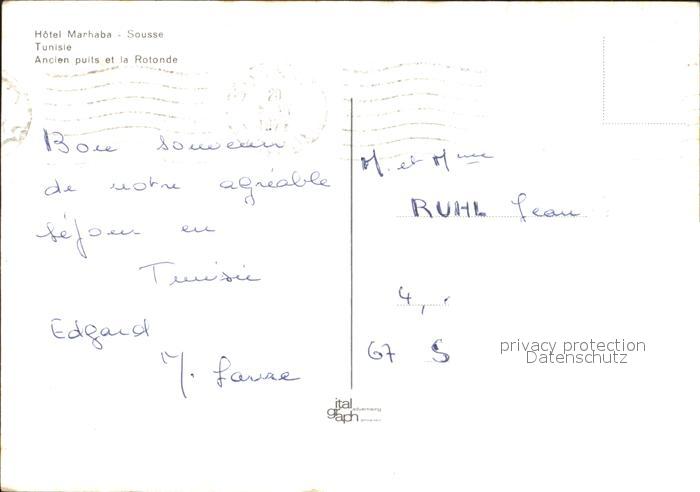 Hôtel Marhaba - Sousse
Tunisie
Ancien puits et la Rotonde
Bon souvenir
de notre agréable
séjour en
Tunisie
Edgard
M. et Mme
RUHL Jean
4, .
67 S
privacy protection
Datenschutz
ital
graph
advertising